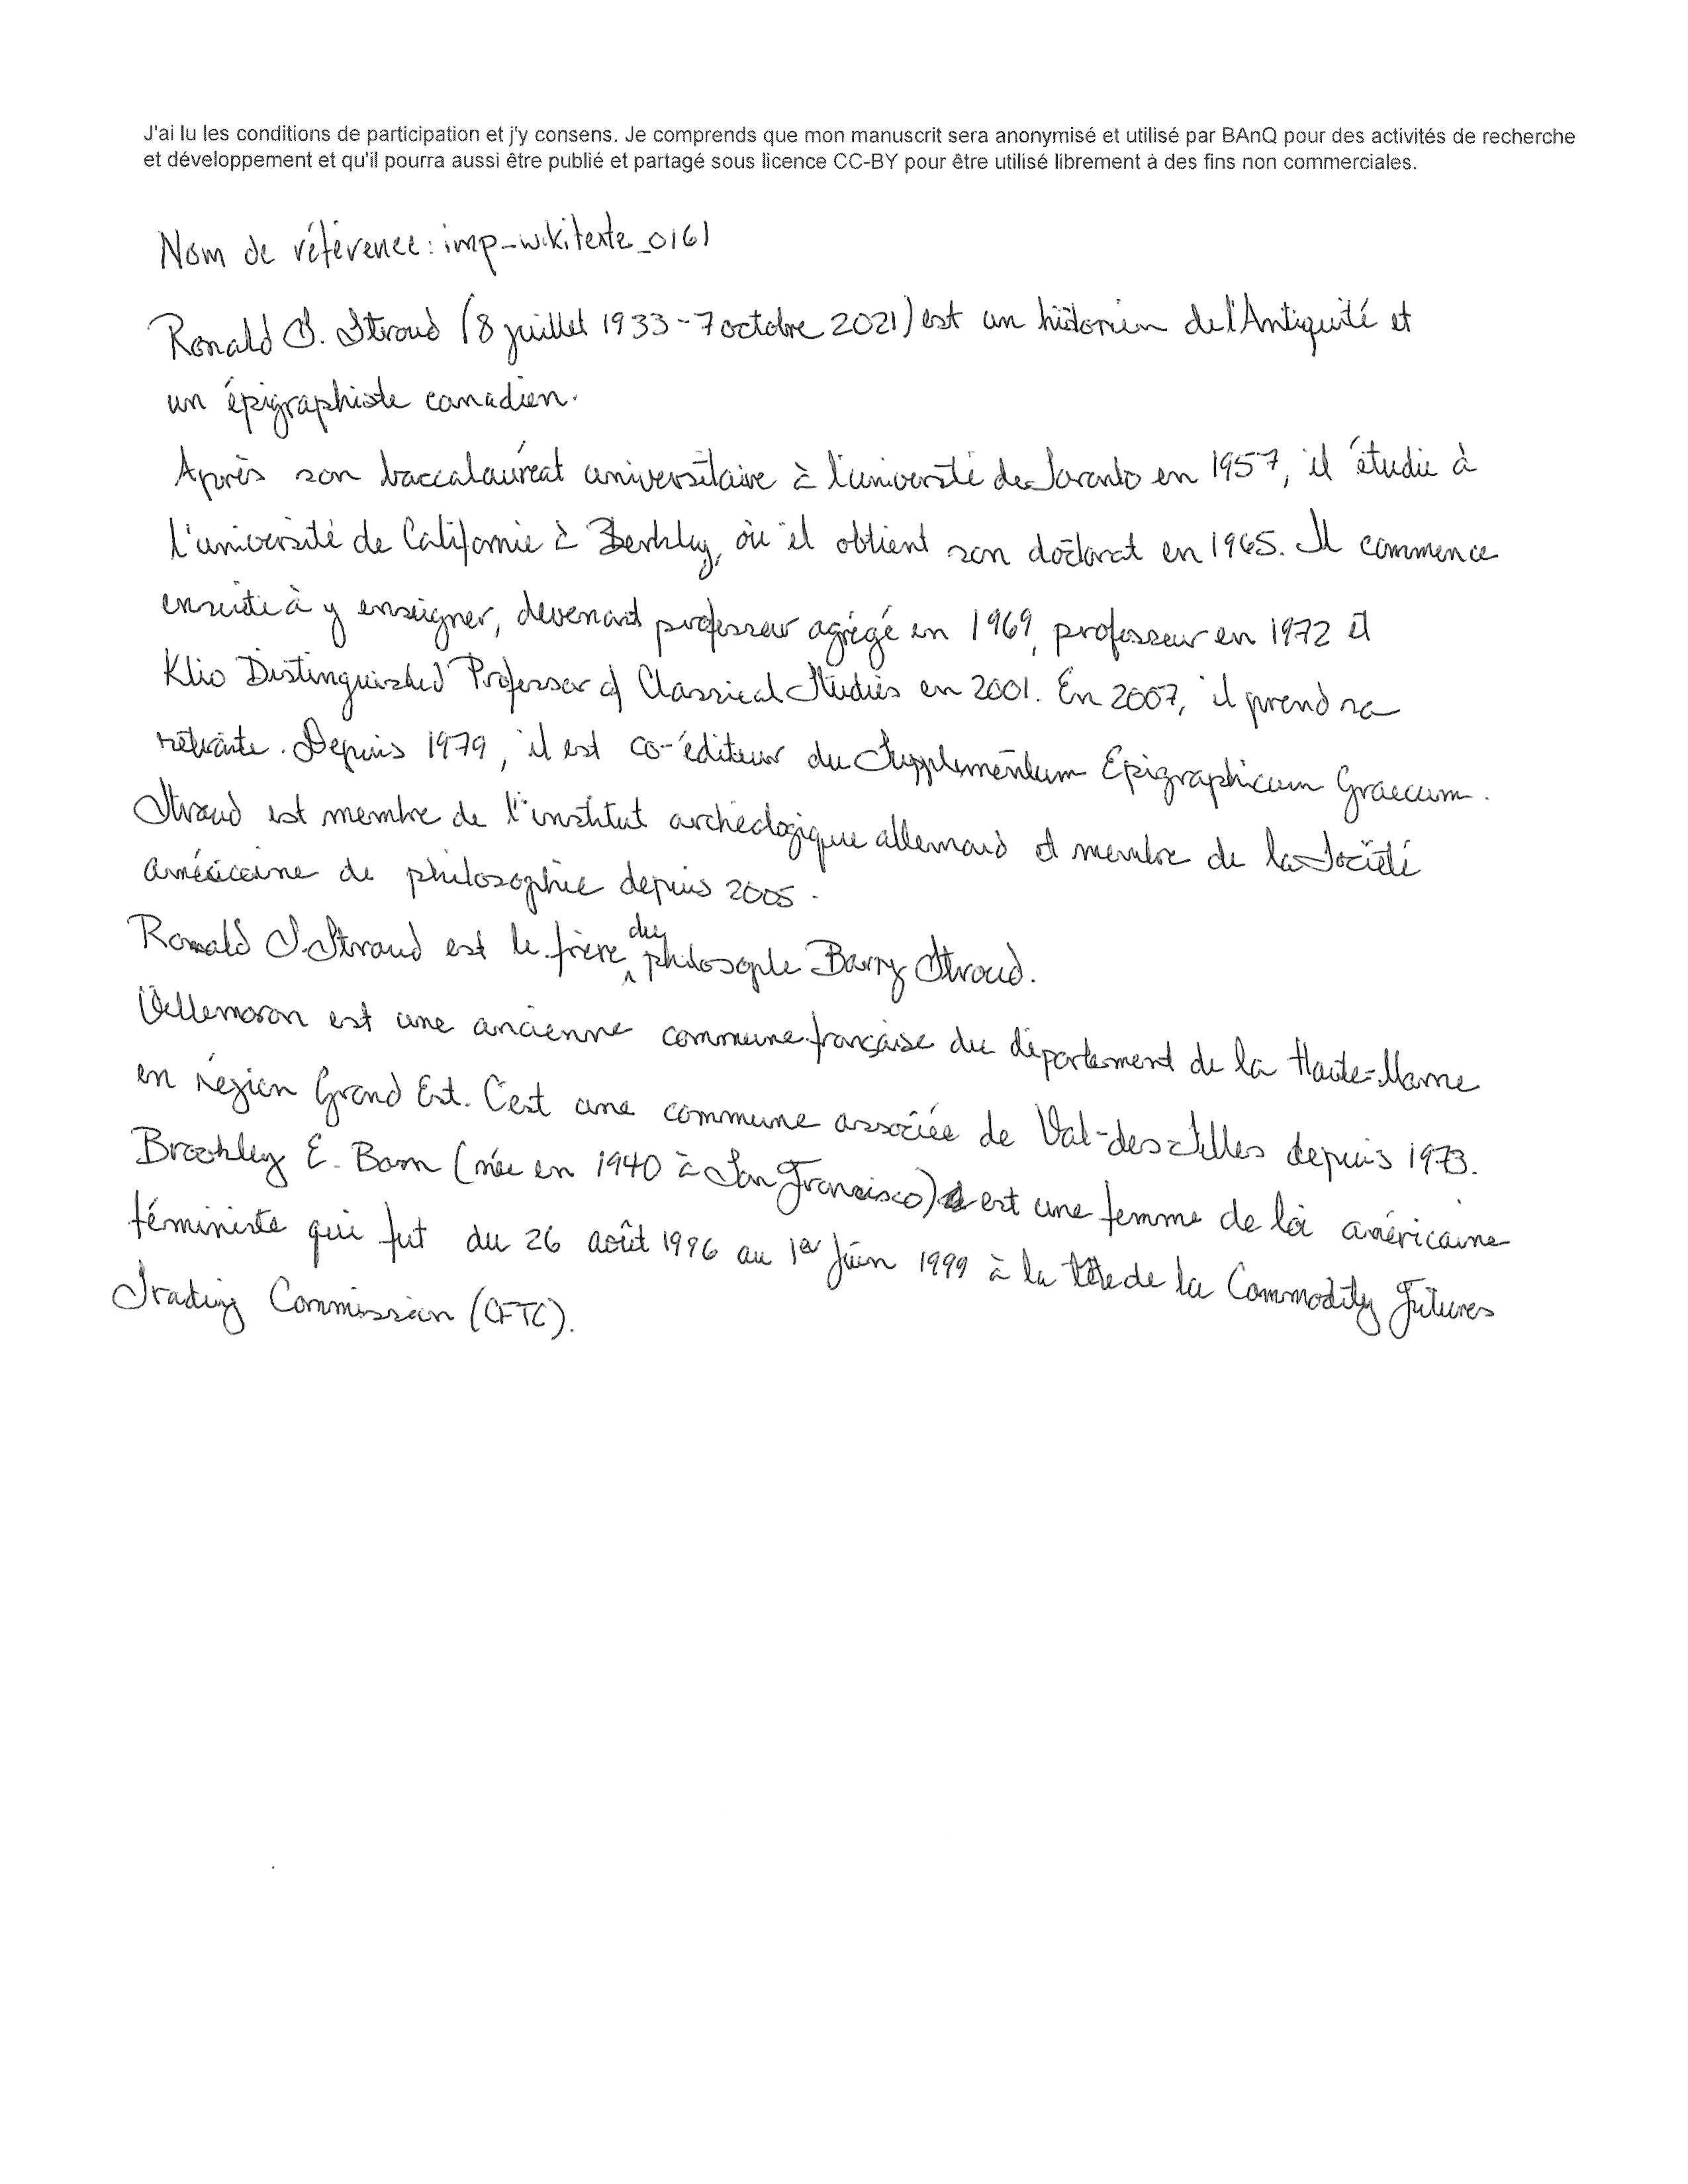 J'ai lu les conditions de participation et j'y consens. Je comprends que mon manuscrit sera anonymisé et utilisé par BAnQ pour des activités de recherche
et développement et qu'il pourra aussi être publié et partagé sous licence CC-BY pour être utilisé librement à des fins non commerciales.
Nom de référence : imp-wikitexte_0161
Ronald S. Stroud (8 juillet 1933 - 7 octobre 2021) est un historien de l'Antiquité et
un épigraphiste canadien.
Après son baccalauréat universitaire à l'université de Toronto en 1957, il étudie à
l'université de Californie à Berkley, où il obtient son doctorat en 1965. Il commence
ensuite à y enseigner, devenant professeur agrégé en 1969, professeur en 1972 et
Klio Distinguished Professor of Classical Studies en 2001. En 2007, il prend sa
retraite. Depuis 1979, il est co-éditeur du Supplementum Epigraphicum Graecum.
Stroud est membre de l'institut archéologique allemand et membre de la Société
américaine de philosophie depuis 2005.
Ronald S. Stroud est le frère du philosophe Barry Stroud.
Vellemoron est une ancienne commune française du département de la Haute-Marne
en région Grand Est. C'est une commune associée de Val-des-Tilles depuis 1973.
Brookley E. Born (née en 1940 à San Francisco) est une femme de loi américaine
féministe qui fut du 26 août 1996 au 1er Juin 1999 à la tête de la Commodity Futures
Trading Commission (CFTC).